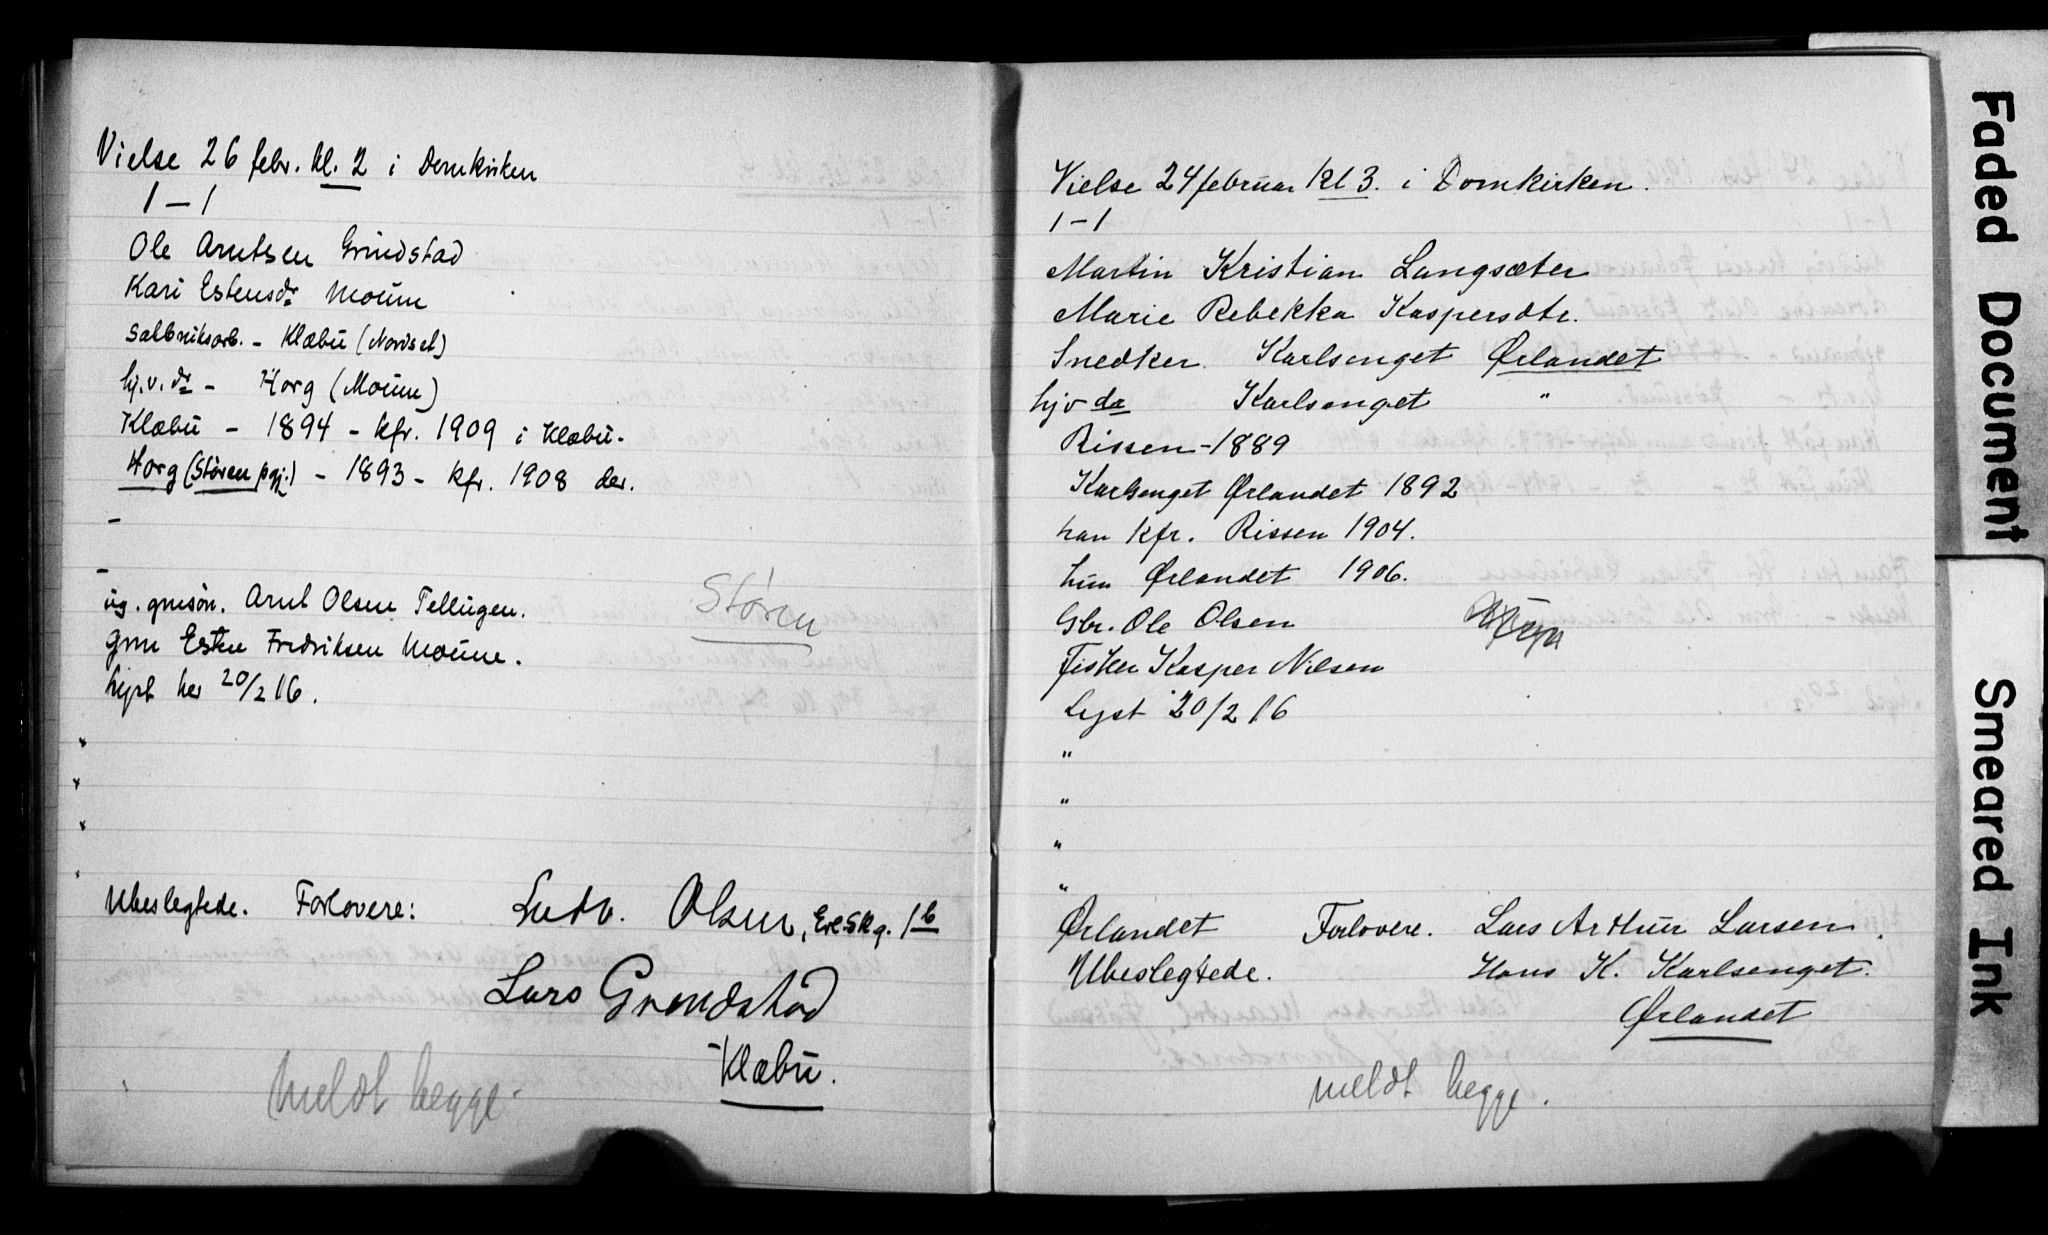 Vielse 26 febr. kl. 2 i Domkirken
1 – 1
Ole Arntsen Grindstad
Kari Estensdr Moum
Klæbu (Nordset)
hj.v. dr – Horg (Moum)
Klæbu – 1894 – kfr. 1909 i Klæbu.
Horg (Støren pgj.) – 1893 – kfr. 1908 der.
–
–
ug. gmsøn. Arnt Olsen Tellugen.
Støren
gm Esten Fredriksen Moum.
Lyst her 20/2 16.
Ubeslegtede. Forlovere: Ludv. Olsen, 1b
Lars Grendstad
Klæbu.
meldt begge.
Vielse 24 februar kl 3. i Domkirken.
1 – 1
Martin Kristian Langsæter
Marie Rebekka Kaspersdtr.
Snedker. Karlsenget Ørlandet
hjv dr Karlsenget "
Rissen – 1889
Karlsenget Ørlandet 1892
han kfr. Rissen 1904.
hun Ørlandet 1906.
Gbr. Ole Olsen
Fisker Kasper Nilsen
Lyst 20/2 16
"
"
"
"
Ørlandet Forlovere. Lars Arthur Larsen.
Ubeslegtede. Hans K. Karlsenget.
Ørlandet
meldt begge.
Faded Document
Smeared Ink